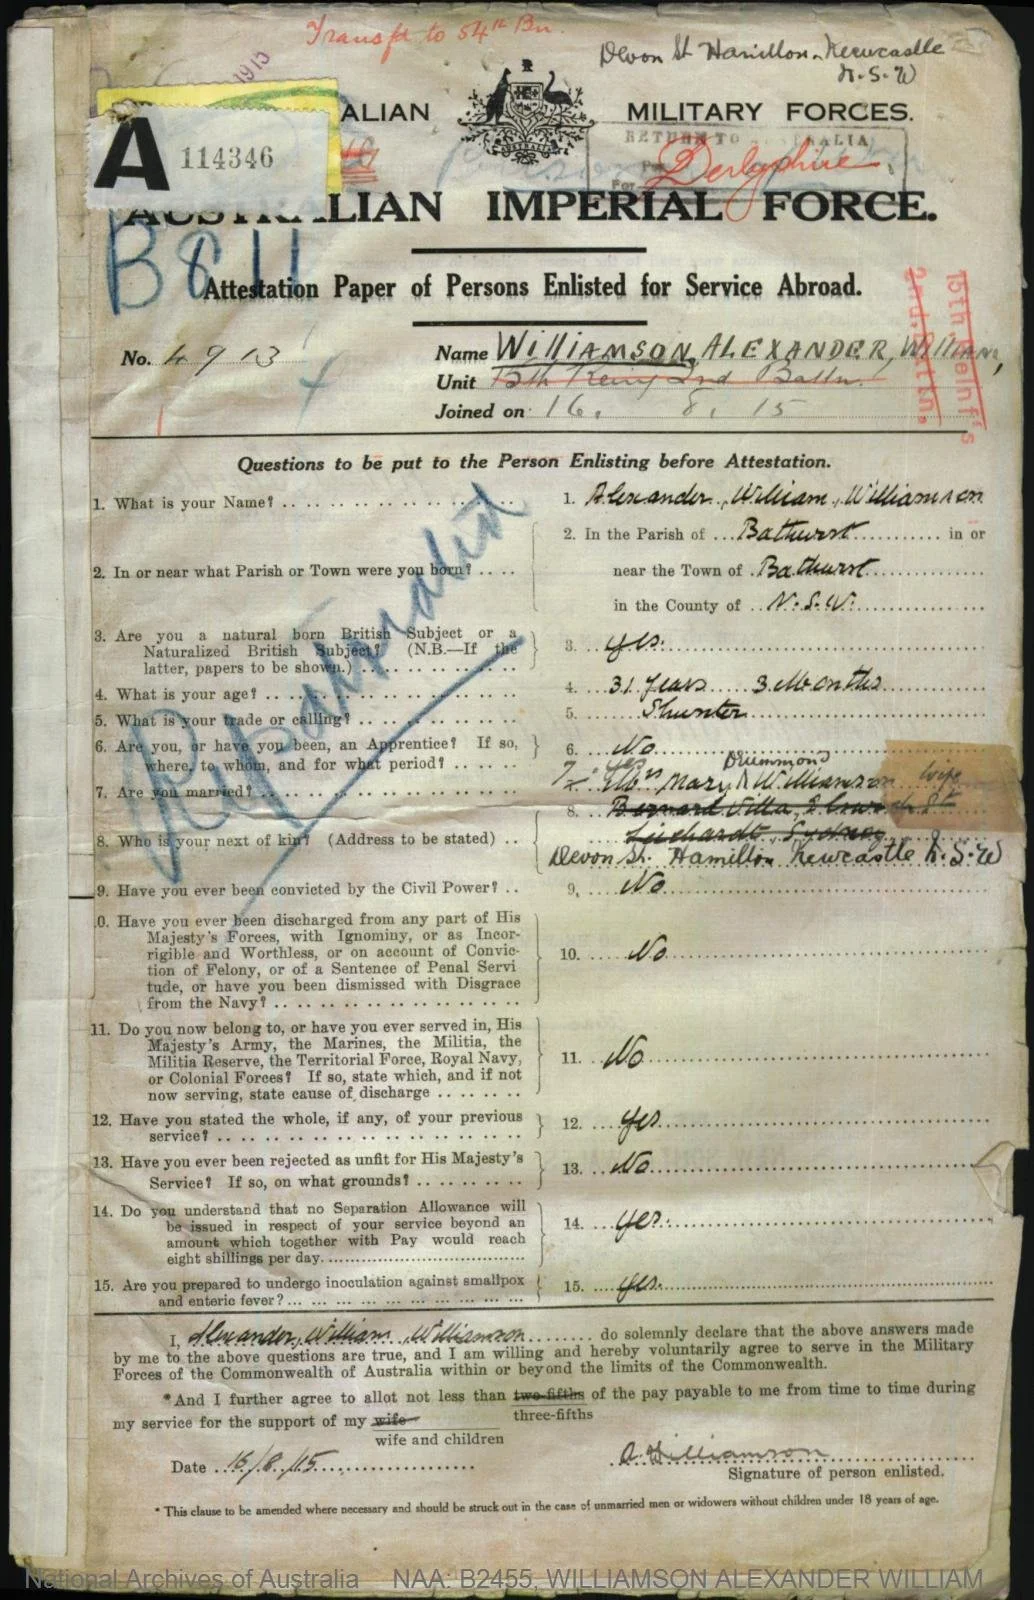 Transfd to 54th Bn.
Devon St Hamilton Newcastle
N.S.W
1915
A 114346
ALIAN MILITARY FORCES.
RETURN TO AUSTRALIA
Derbyshire
AUSTRALIAN IMPERIAL FORCE.
B 811
Attestation Paper of Persons Enlisted for Service Abroad.
15th Reinf's
2nd. Battn.
No. 4913
Name WILLIAMSON, ALEXANDER, WILLIAM,
Unit 15th Rein/ 2nd Battn.
Joined on 16. 8. 15
Questions to be put to the Person Enlisting before Attestation.
1. What is your Name? 1. Alexander, William, Williamson
2. In or near what Parish or Town were you born? 2. In the Parish of Bathurst in or
near the Town of Bathurst
in the County of N.S.W.
3. Are you a natural born British Subject or a
Naturalized British Subject? (N.B.—If the
latter, papers to be shown.) 3. yes.
4. What is your age? 4. 31 years 3 Months
5. What is your trade or calling? 5. Shunter
6. Are you, or have you been, an Apprentice? If so,
where, to whom, and for what period? 6. No
7. Are you married? 7. yes
Drummond
Mrs Mary Williamson wife
8. Who is your next of kin? (Address to be stated) 8. Bernard Villa,
Leichardt, Sydney
Devon St. Hamilton Newcastle N.S.W
9. Have you ever been convicted by the Civil Power? 9. No
0. Have you ever been discharged from any part of His
Majesty's Forces, with Ignominy, or as Incor-
rigible and Worthless, or on account of Convic-
tion of Felony, or of a Sentence of Penal Servi
tude, or have you been dismissed with Disgrace
from the Navy? 10. No
11. Do you now belong to, or have you ever served in, His
Majesty's Army, the Marines, the Militia, the
Militia Reserve, the Territorial Force, Royal Navy,
or Colonial Forces? If so, state which, and if not
now serving, state cause of discharge 11. No
12. Have you stated the whole, if any, of your previous
service? 12. yes
13. Have you ever been rejected as unfit for His Majesty's
Service? If so, on what grounds? 13. No
14. Do you understand that no Separation Allowance will
be issued in respect of your service beyond an
amount which together with Pay would reach
eight shillings per day. 14. yes.
15. Are you prepared to undergo inoculation against smallpox
and enteric fever? 15. yes.
Repatriated
I, Alexander, William, Williamson do solemnly declare that the above answers made
by me to the above questions are true, and I am willing and hereby voluntarily agree to serve in the Military
Forces of the Commonwealth of Australia within or beyond the limits of the Commonwealth.
*And I further agree to allot not less than two-fifths of the pay payable to me from time to time during
three-fifths
my service for the support of my wife
wife and children
Date 16/8/15
A. Williamson
Signature of person enlisted.
* This clause to be amended where necessary and should be struck out in the case of unmarried men or widowers without children under 18 years of age.
National Archives of Australia NAA: B2455, WILLIAMSON ALEXANDER WILLIAM